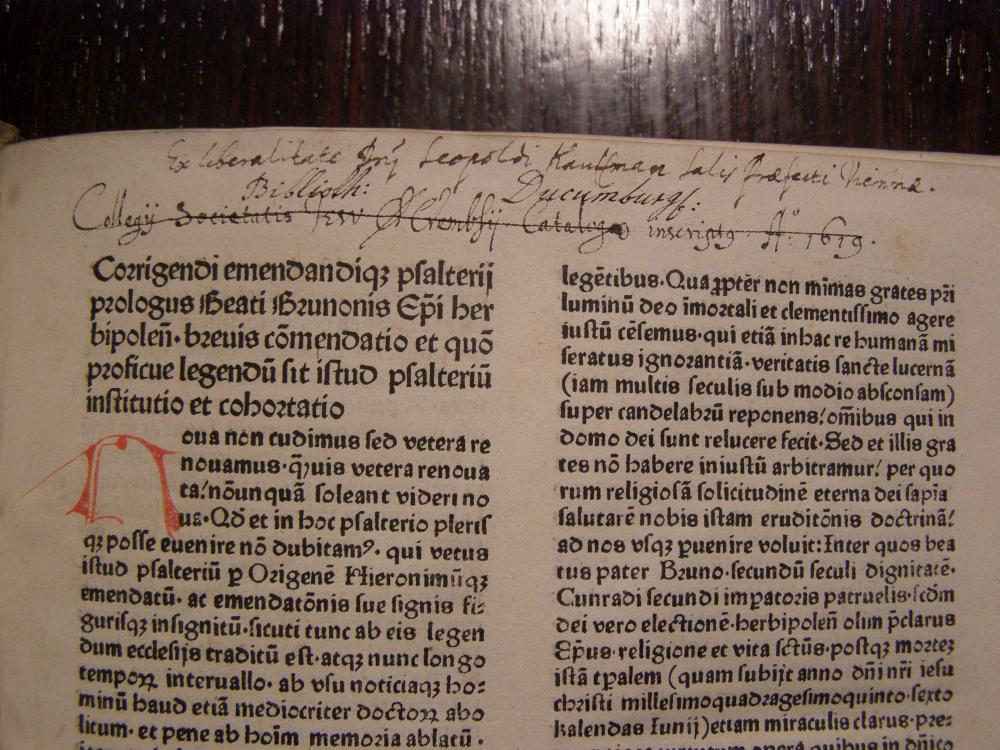 Ex liberalitate Dnj Leopoldi Kauffman Salis Præfecti Viennæ.
Biblioth: Ducumburgs:
Collegij Societatis Jesv Crembsij Catalogo inscriptg Aº: 1619.
Corrigendi emendandiqꝫ psalterij
prologus Beati Brunonis Ep̄i her
bipoleñ· breuis cōmendatio et quō
proficue legendū sit istud psalteriū
institutio et cohortatio
Noua non cudimus sed vetera re
nouamus· q̄uis vetera renoua
ta! nōunquā soleant videri no
ua· Qd̄ et in hoc psalterio plerisꝙ
qꝫ posse euenire nō dubitamꝰ· qui vetus
istud psalteriū ꝑ Origenē Hieronimūqꝫ
emendatū· ac emendatōnis sue signis fi⸗
gurisqꝫ insignitū· sicuti tunc ab eis legen
dum ecclesijs traditū est· atqꝫ nunc longo
temporꝝ interuallo· ab vsu noticiaqꝫ ho⸗
minū haud etiā mediocriter doctorꝝ abo
litum· et pene ab hoīm memoria ablatū·
legētibus· Qua ꝓpter non minimas grates pr̄i
luminū deo īmortali et clementissimo agere
iustū cēsemus· qui etiā in hac re humanā mi
seratus ignorantiā· veritatis sancte lucernā
(iam multis seculis sub modio absconsam)
super candelabrū reponens! om̄ibus qui in
domo dei sunt relucere fecit· Sed et illis gra
tes nō habere iniustū arbitramur! per quo
rum religiosā solicitudinē eterna dei sapīa
salutarē nobis istam eruditōnis doctrinā!
ad nos vsqꝫ ꝑuenire voluit: Inter quos bea
tus pater Bruno· secundū seculi dignitatē·
Cunradi secundi imꝑatoris patruelis· scd̄m
dei vero electionē· herbipoleñ olim p̄clarus
Ep̄us· religione et vita sc̄tus· postqꝫ mortez
istā tꝑalem (quam subijt anno dn̄i nr̄i iesu
christi millesimoquadragesimoquinto· sexto
kalendas Iunij) etiam miraculis clarus· pre⸗
opera quibus in dn̄ico